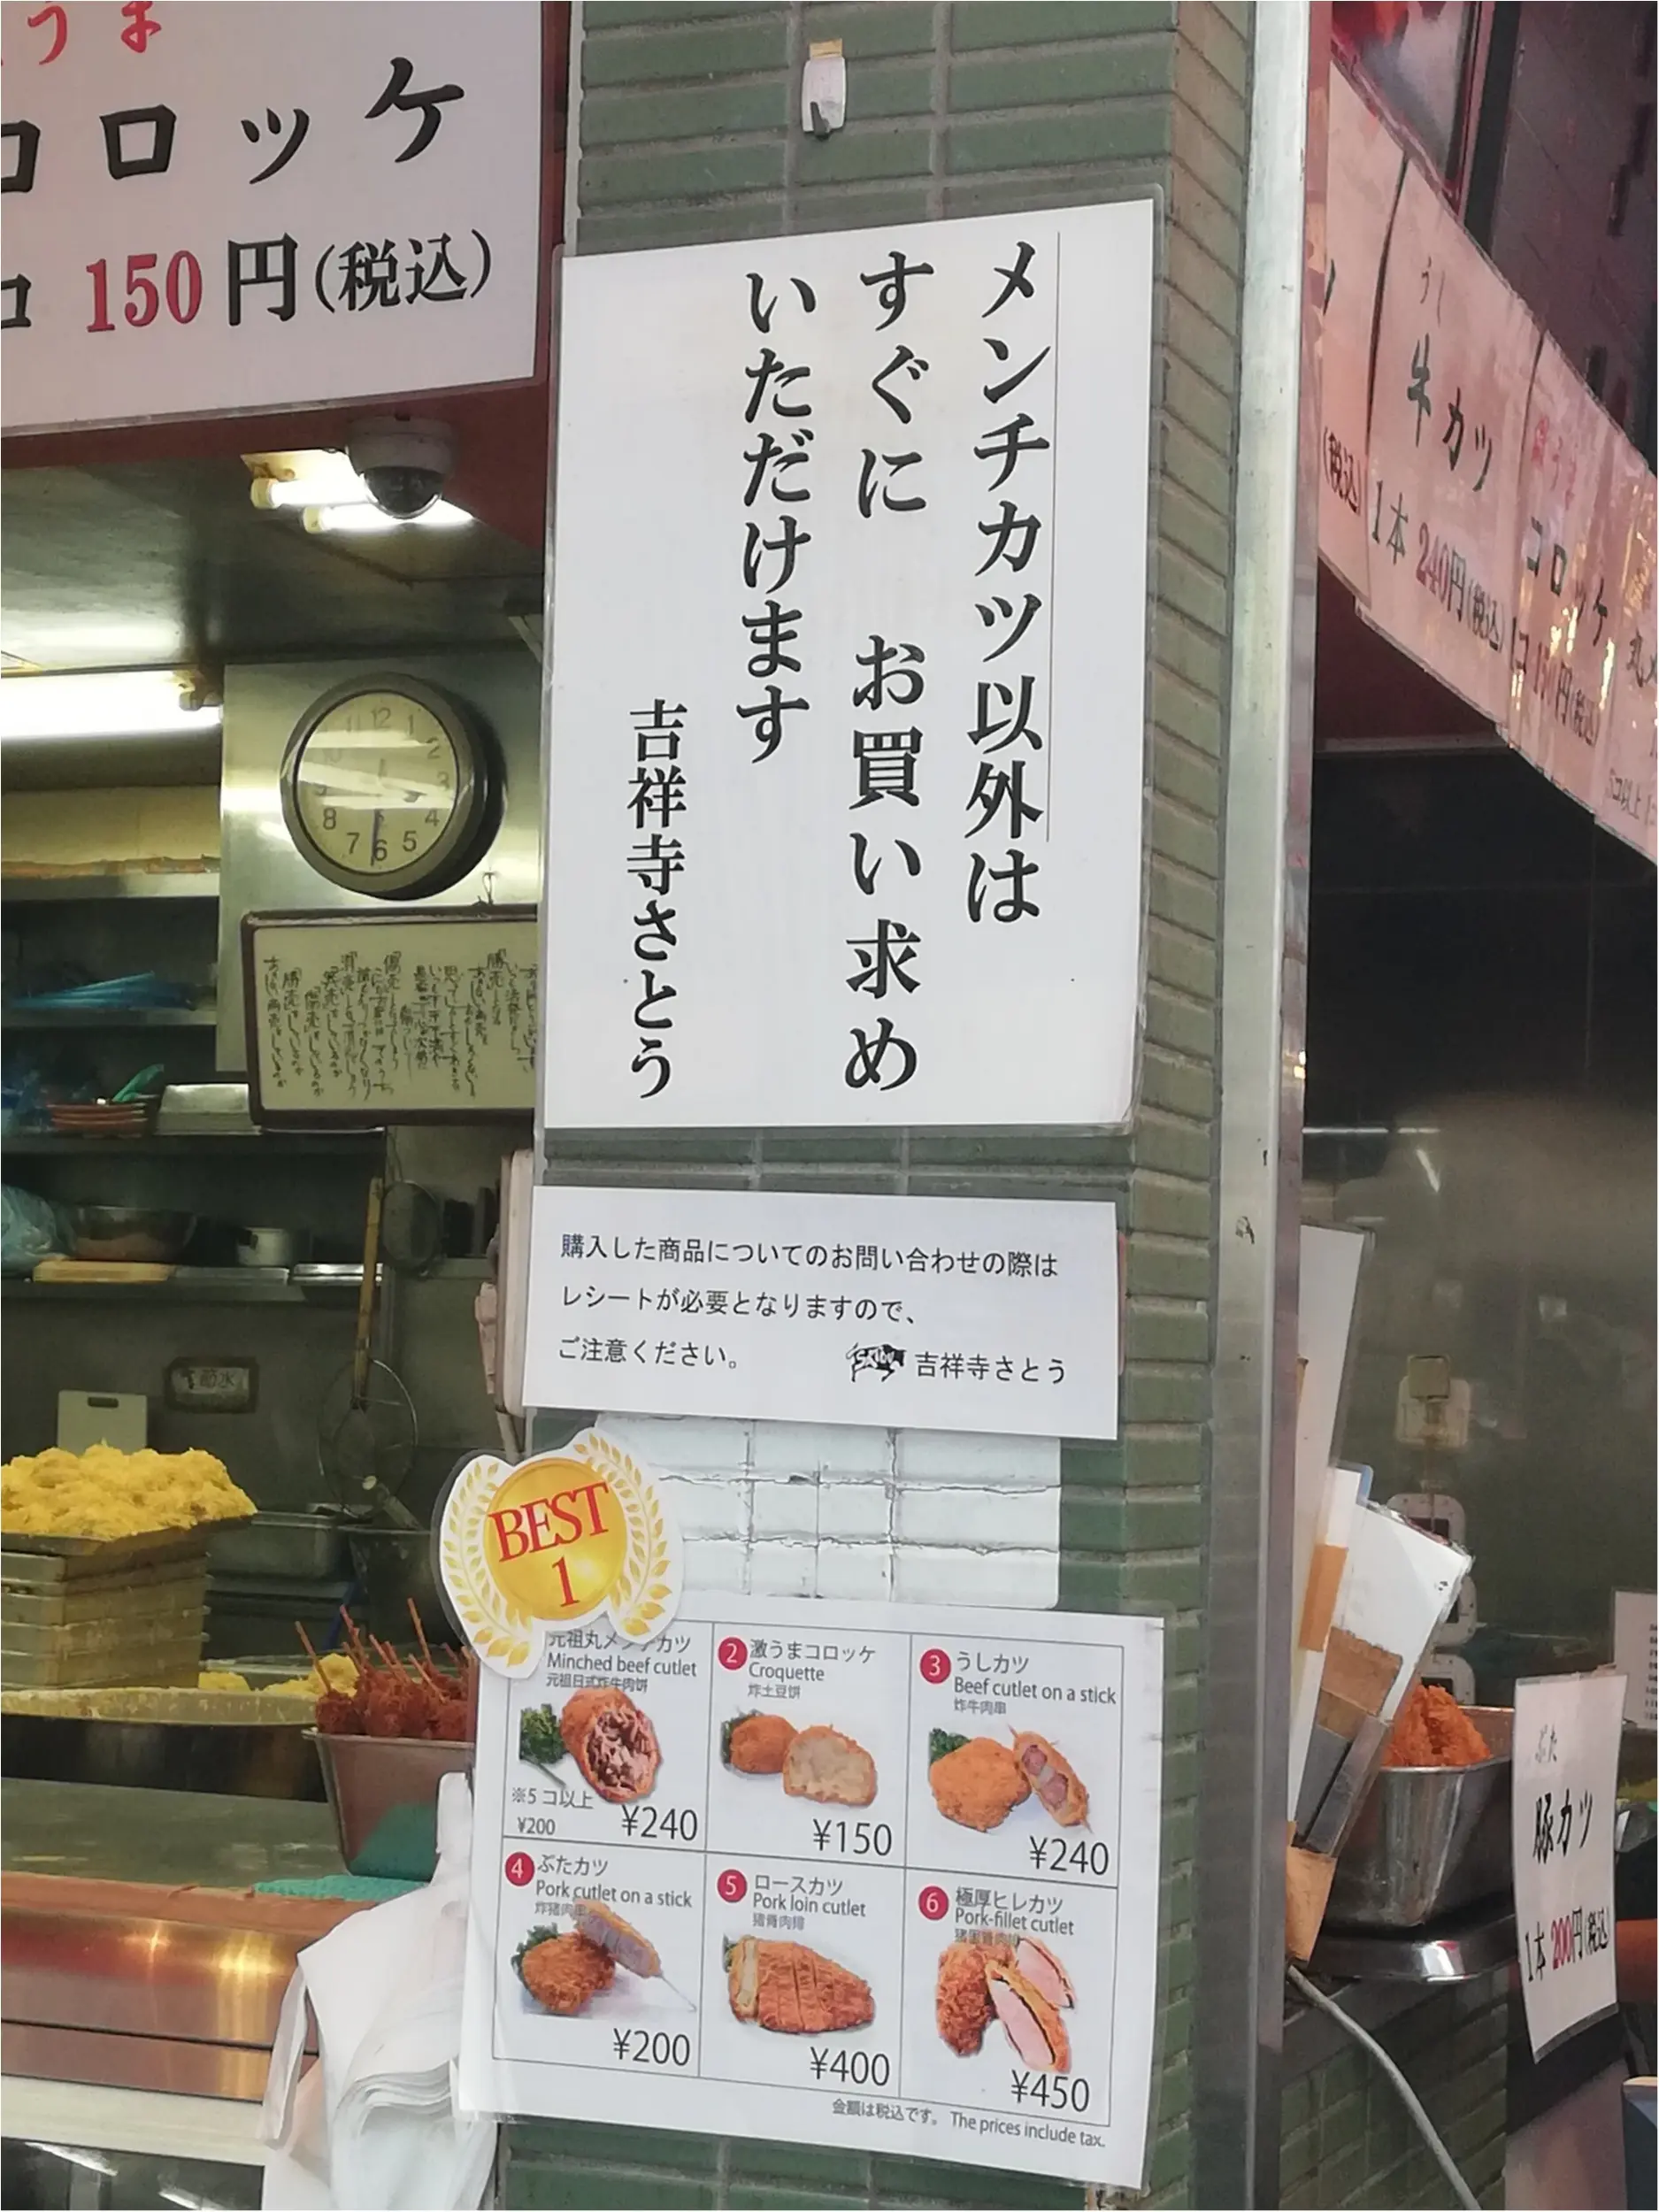 うま
コロッケ
コ 150円(税込)
メンチカツ以外は
すぐに お買い求め
いただけます
吉祥寺さとう
12
1
2
3
4
5
6
7
8
11
10
購入した商品についてのお問い合わせの際は
レシートが必要となりますので、
ご注意ください。
吉祥寺さとう
節水
BEST
1
元祖丸メンチカツ
Minched beef cutlet
元祖日式炸牛肉饼
※5コ以上
¥200
¥240
2 激うまコロッケ
Croquette
炸土豆饼
¥150
3 うしカツ
Beef cutlet on a stick
炸牛肉串
¥240
4 ぶたカツ
Pork cutlet on a stick
炸猪肉串
¥200
5 ロースカツ
Pork loin cutlet
猪背肉排
¥400
6 極厚ヒレカツ
Pork-fillet cutlet
¥450
金額は税込です。 The prices include tax.
(税込)
うし
牛カツ
1本 240円(税込)
うま
コロッケ
1コ 150円(税込)
丸メ
5コ以上
ぶた
豚カツ
1本 200円(税込)